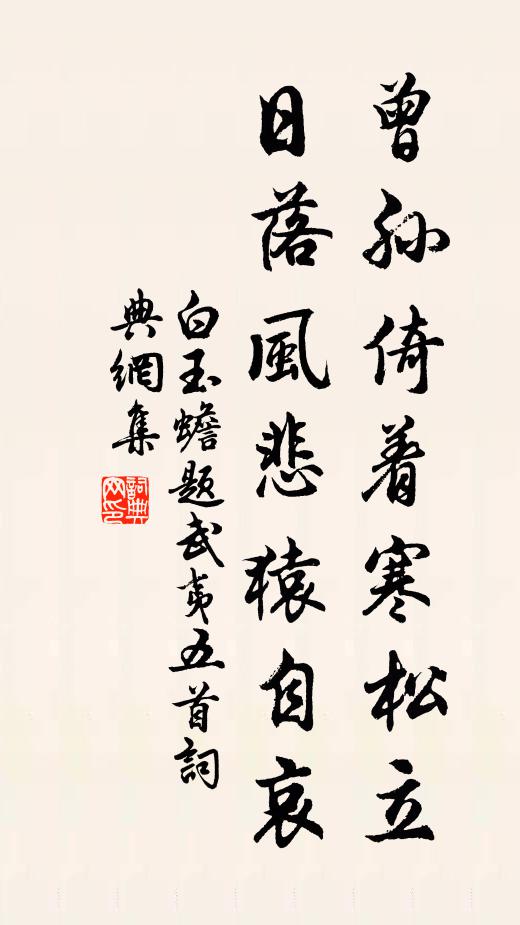 曾孙倚着寒松立
日落風悲猿自哀
白玉蟾題武夷五首詞
典網集
詞典網印